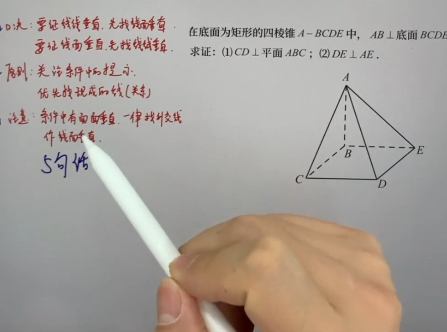 口决：要证线线垂直，先找线面垂直.
要证线面垂直，先找线线垂直.
原则：关注条件中的提示.
优先找现成的线(关系)
注意：条件中有面面垂直，一律找到交线
作线面垂直.
5句话
在底面为矩形的四棱锥 A－BCDE 中，AB⊥底面 BCDE
求证：(1)CD⊥平面 ABC；(2)DE⊥AE．
A
B
E
C
D